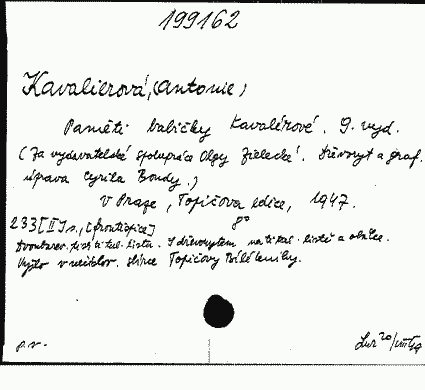 199162
Kavalierová, (Antonie)
Paměti babičky Kavalírové. 9. vyd.
(Za vydavatelské spolupráce Olgy Zielecké. Dřevoryt a graf.
úprava Cyrila Boudy.)
V Praze, Topičova edice, 1947.
233 [II] s., [frontispice] 8°
Dvoubarev. tisk titul. listu. S dřevorytem na titul. listě a obálce.
Vyšlo v nečíslov. sbírce Topičovy Bílé knihy.
p. v.